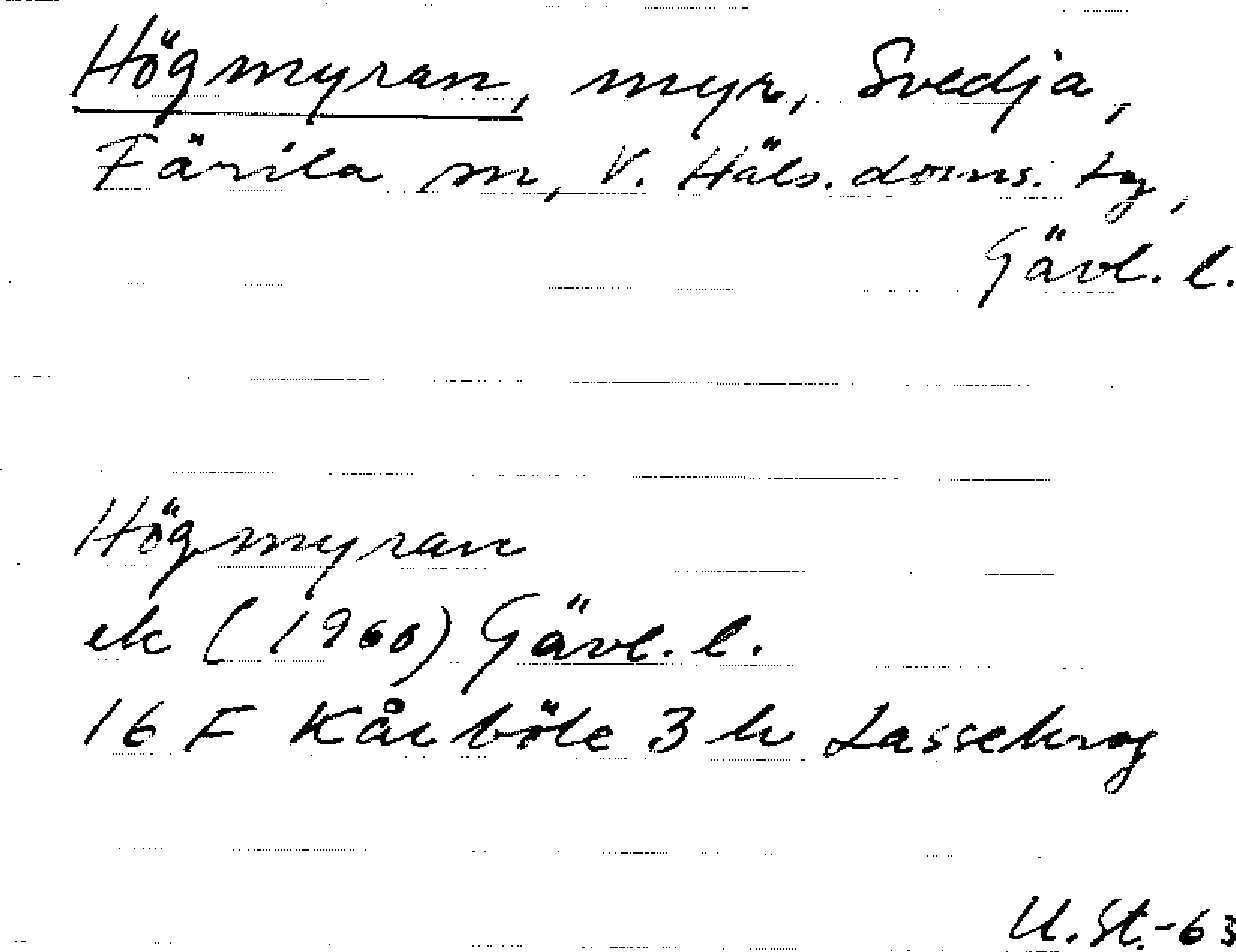 Högmyran, myr, Svedja,
Färila sn, V. Häls. doms. tg,
Gävl. l.
Högmyran
ek (1960) Gävl. l.
16 F Kårböle 3 h Lassekrog
U. St. -63